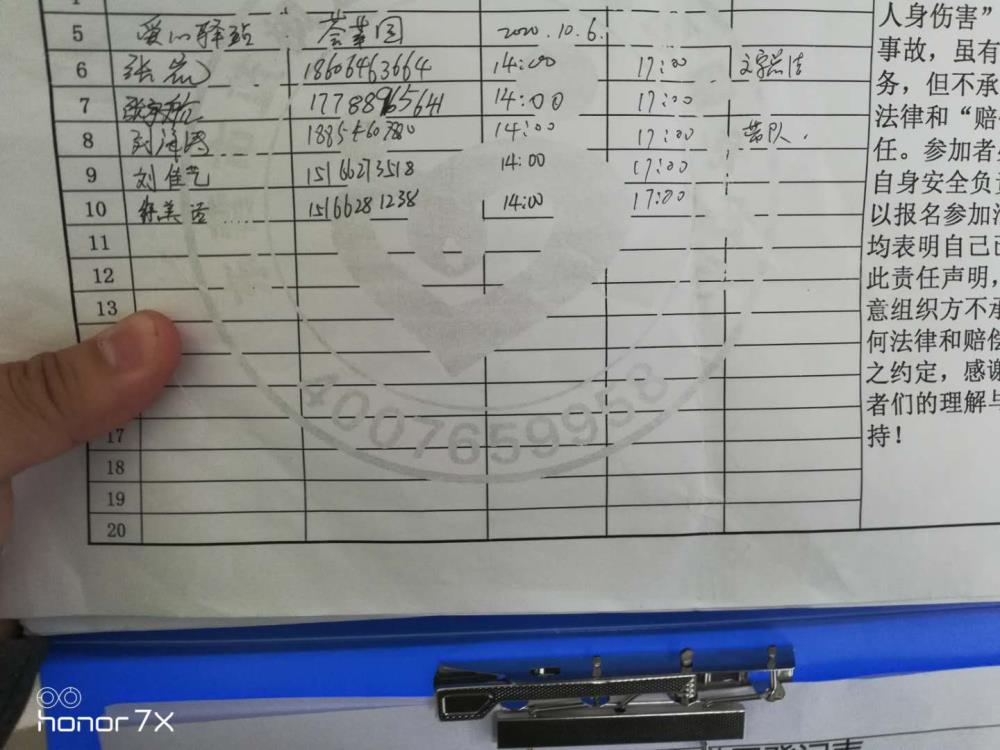 5 爱心驿站 荟萃园 2020.10.6.
6 张岚 18606463664 14:00 17:00
7 17788965641 14:00 17:00
8 14:00 17:00 带队.
9 刘佳艺 15166273518 14:00 17:00
10 15166281238 14:00 17:00
11
12
13
17
18
19
20
人身伤害”
事故，虽有
务，但不承
法律和“赔
任。参加者
自身安全负责
以报名参加
均表明自己
此责任声明，
意组织方不承
何法律和赔偿
之约定，感谢
者们的理解与
持！
4007659958
honor 7X